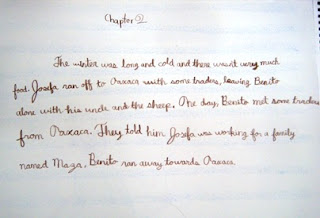 Chapter 2
The winter was long and cold and there wasnt very much
food. Josefa ran off to Oaxaca with some traders, leaving Benito
alone with his uncle and the sheep. One day, Benito met some traders
from Oaxaca. They told him Josefa was working for a family
named Maza. Benito ran away towards Oaxaca.